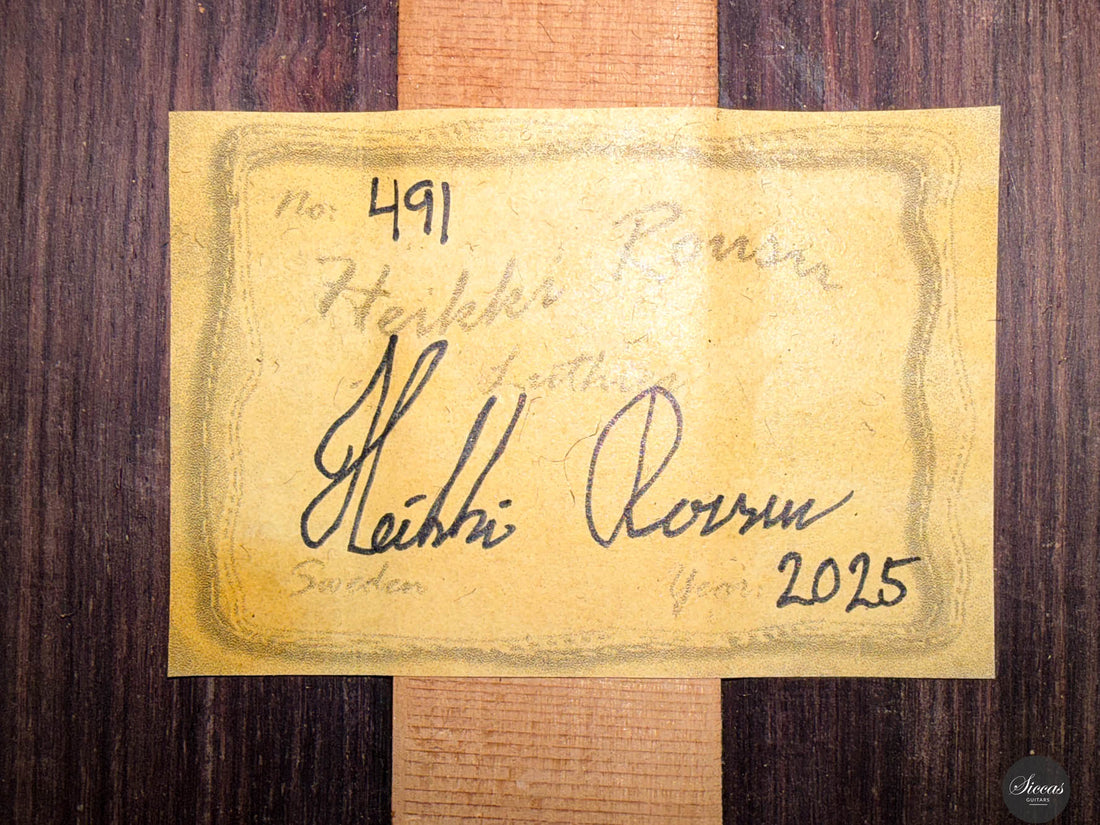 No: 491
Heikki Rousu
Luthier
Heikki Rousu
Sweden Year: 2025
Siccas
GUITARS